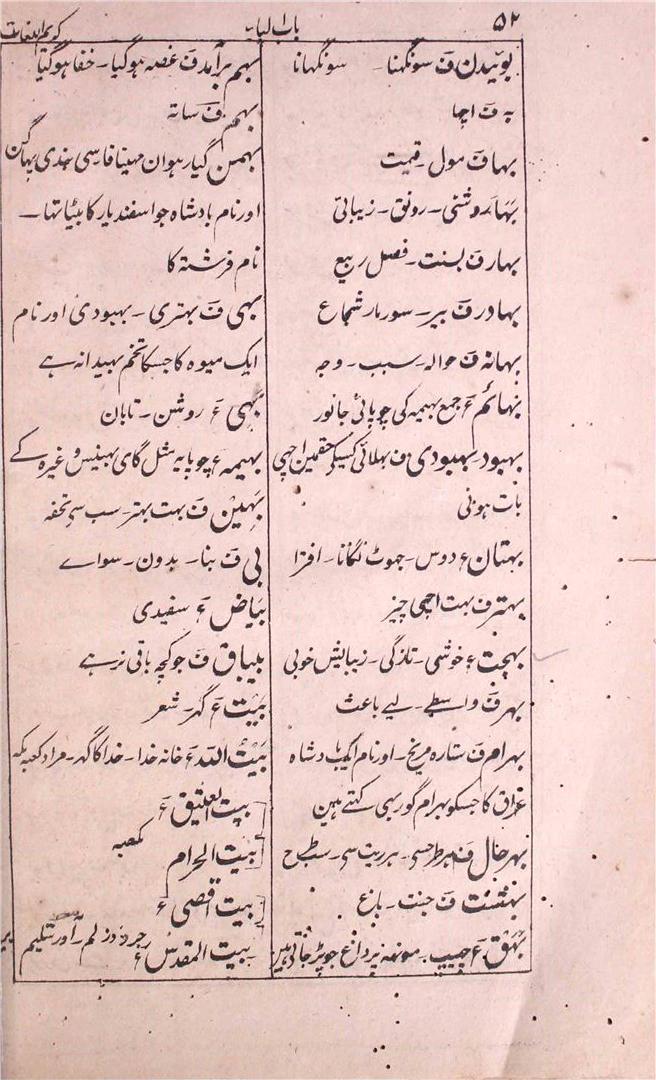 ۵۲
باب البا
کریم اللغات
بوئیدن ف سونگہنا۔ سونگہانا
بہ ف اچہا
بہا ف مول۔ قیمت
بہاء روشنی۔ رونق۔ زیبائی
بہار ف بسنت۔ فصل ربیع
بہادر ف بیر۔ سورما۔ شجاع
بہانہ ف حوالہ۔ سبب۔ وجہ
بہائم ع جمع بہیمہ کی چوپائی جانور
بہبود۔ بہبودی ف بہلائی کسیکے حقمین اچہی
بات ہونی
بہتان ع دوس۔ جہوٹ لگانا۔ افترا
بہتر ف بہت اچہی چیز
بہجت ع خوشی۔ تازگی۔ زیبایش خوبی
بہر ف واسطے۔ لیے باعث
بہرام ف ستارہ مریخ۔ اور نام ایک بادشاہ
عراق کا جسکو بہرام گور بہی کہتے ہین
بہرحال ف ہر طرحسی۔ ہر ریت سی۔
بہشت ف جنت۔ باغ
بہق ع چہیپ۔ مونہہ پر داغ جو پڑ جاتی ہین
بہم برآمد ف غصہ ہوگیا۔ خفا ہوگیا
بہم ف ساتہ
بہمن گیارہوان مہینا فارسی ہندی پہاگن
اور نام بادشاہ جو اسفندیار کا بیٹا تہا۔
نام فرشتہ کا
بہی ف بہتری۔ بہبودی اور نام
ایک میوہ کا جسکا تخم بہیدانہ ہے
بہی ع روشن۔ تابان
بہیمہ ع چوپایہ مثل گای بہینس وغیرہ کے
بہین ف بہت بہتر۔ سب سی تحفہ
بی ف بنا۔ بدون۔ سواے
بیاض ع سفیدی
بیباق ف جو کچہ باقی نرہے
بیت ع گہر۔ شعر
بیت اللہ ع خانہ خدا۔ خدا کا گہر۔ مراد کعبہ مکہ
بیت العتیق ع
بیت الحرام کعبہ
بیت اقصی ع
بیت المقدس ع